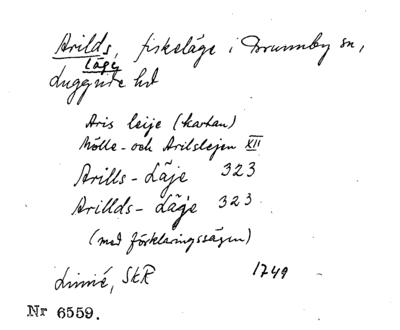 Arilds, fiskeläge i Brunnby sn,
läge
Luggude hd
Aris leije (kartan)
Mölle- och Arilslejen XII
Arills-Läje 323
Arillds-Läge 323.
(med förklaringssägen)
Linné, SkR 1749
Nr 6559.